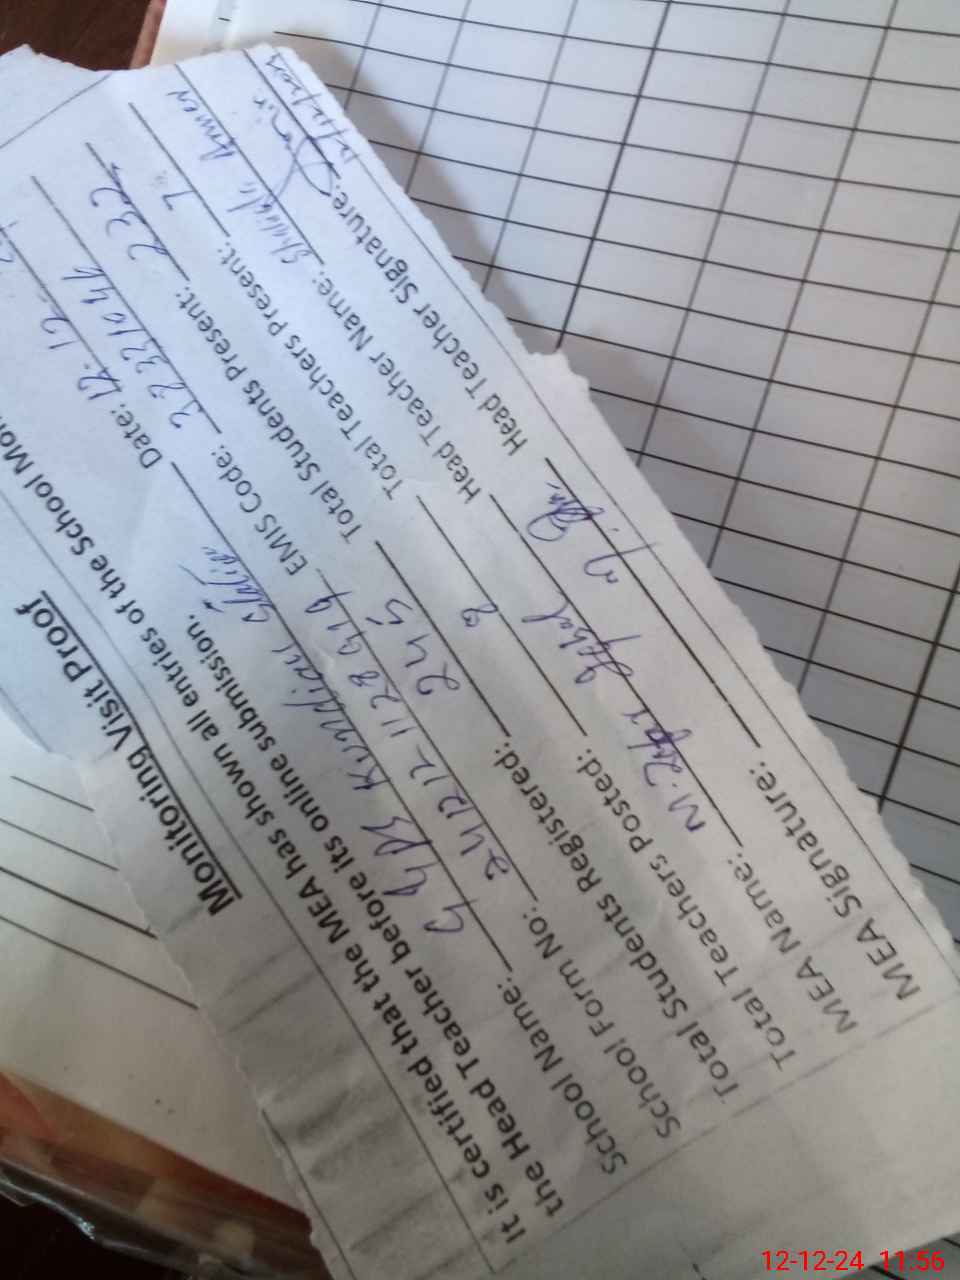 Monitoring Visit Proof
It is certified that the MEA has shown all entries of the School Mon
the Head Teacher before its online submission. Date: 12-12-
School Name: GGPS Kundiani EMIS Code: 32331044
School Form No: 24121128919 Total Students Present: 232
Total Students Registered: 245 Total Teachers Present: 7
Total Teachers Posted: 8 Head Teacher Name:
MEA Name: M. Zafar Iqbal Head Teacher Signature:
MEA Signature:
12-12-24 11:56